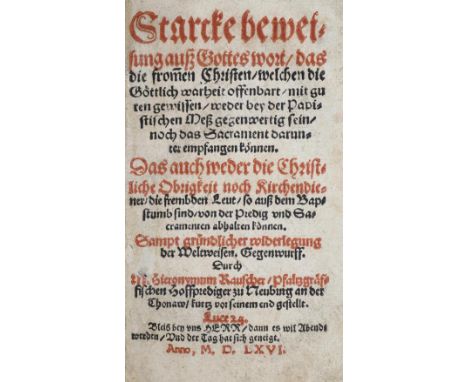 Starcke bewei-
sung auß Gottes wort/ das
die from̃en Christen/ welchen die
Göttlich warheit offenbart/ mit gu
ten gewissen/ weder bey der Papi-
stischen Meß gegenwertig sein/
noch das Sacrament darun-
ter empfangen können.
Das auch weder die Christ-
liche Obrigkeit noch Kirchendie-
ner/ die frembden Leut/ so auß dem Bap-
stumb sind/ von der Predig vnd Sa-
cramenten abhalten können.
Sampt gründlicher widerlegung
der Weltweisen. Gegenwurff.
Durch
M. Hieronymum Rauscher/ Pfaltzgräf-
fischen Hoffprediger zu Neuburg an der
Thonaw/ kurtz vor seinem end gestellt.
Luce 24.
Bleib bey vns HERR/ dann es wil Abendt
werden/ Vnd der Tag hat sich geneigt.
Anno, M. D. LXVI.